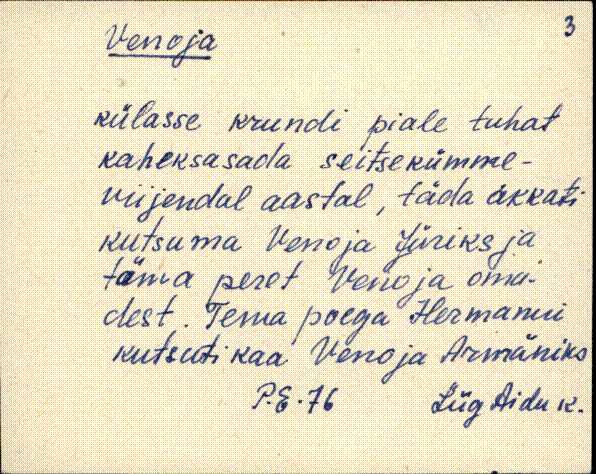 3
Venoja
külasse krundi piale tuhat
kaheksasada seitsekümme-
viijendal aastal, täda akkati
kutsuma Venoja Jüriks ja
täma peret Venoja oma-
dest. Tema poega Hermanni
kutsuti kaa Venoja Armäniks
P.E. 76 Lüg Aidu k.